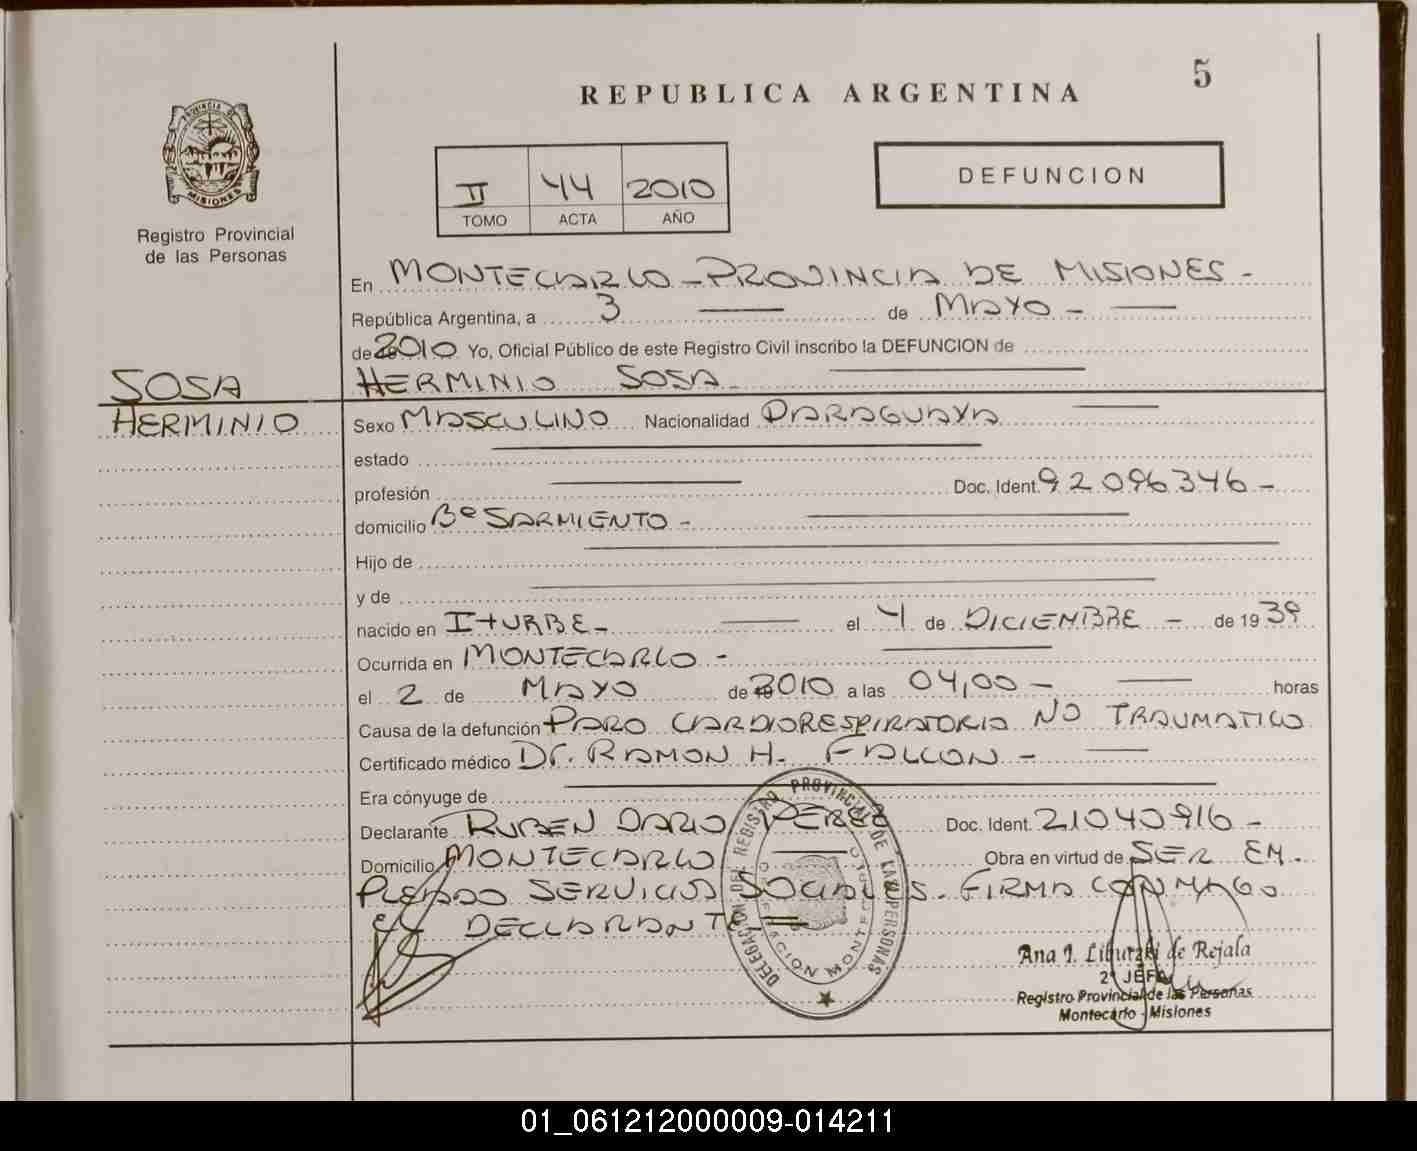 5
REPUBLICA ARGENTINA
PROVINCIA DE
MISIONES
Registro Provincial
de las Personas
II 44 2010
TOMO ACTA AÑO
DEFUNCION
En MONTECARLO - PROVINCIA DE MISIONES -
República Argentina, a 3 de MAYO -
de 2010 Yo, Oficial Público de este Registro Civil inscribo la DEFUNCION de
SOSA
HERMINIO SOSA
HERMINIO
Sexo MASCULINO Nacionalidad PARAGUAYA
estado
profesión Doc. Ident. 92096346 -
domicilio Bº SARMIENTO -
Hijo de
y de
nacido en ITURBE - el 4 de DICIEMBRE - de 1939
Ocurrida en MONTECARLO -
el 2 de MAYO de 2010 a las 04,00 - horas
Causa de la defunción PARO CARDIORESPIRATORIO NO TRAUMATICO
Certificado médico Dr. RAMON H. FALCON -
Era cónyuge de
Declarante RUBEN DARIO PEREZ Doc. Ident. 21040916 -
Domicilio MONTECARLO Obra en virtud de SER EM.
PLEADO SERVICIOS SOCIALES - FIRMA CONMIGO
EL DECLARANTE
DELEGACION DEL REGISTRO PROVINCIAL DE LAS PERSONAS
Ana I. Liburzki de Rejala
2º JEFA
Registro Provincial de las Personas
Montecarlo - Misiones
01_061212000009-014211